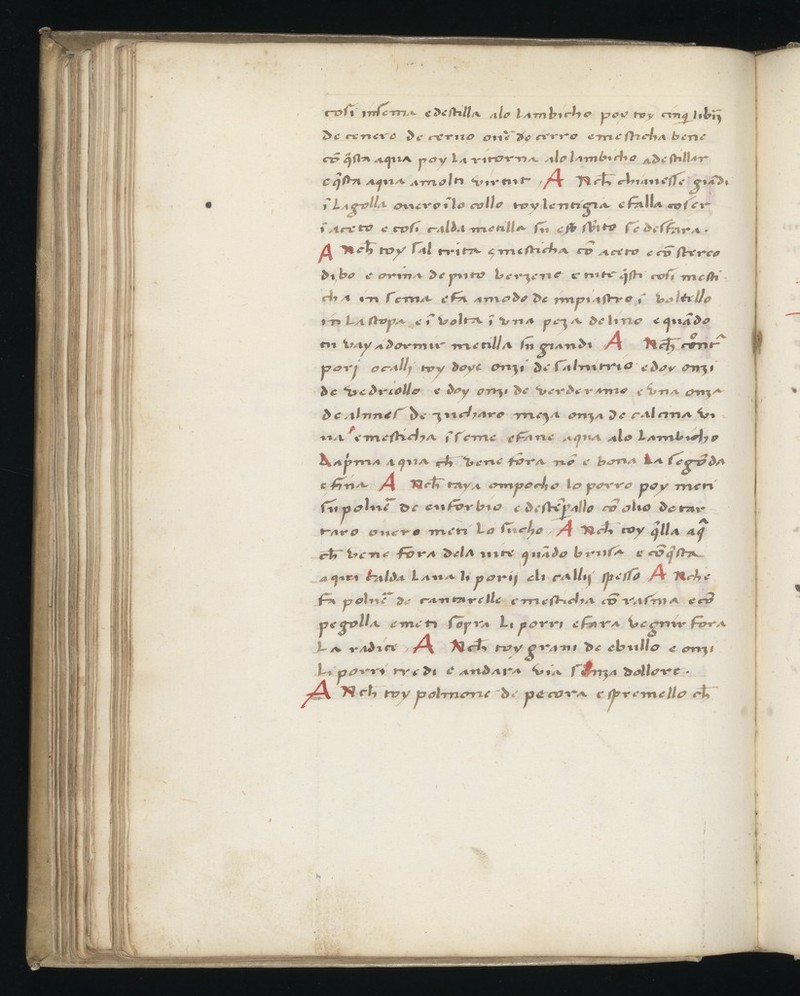 cosi insema e destilla alo lambicho poy toy cinq libr̄
de cenere de ceruo ouē de cerro e mesticha bene
cō q̄sta aqua poy la ritorna alo lambicho a destillar
e q̄sta aqua a molti virtut A Nch̄ chi auesse giādi
ī la golla ouero ī lo collo toy lentigia e falla coser
ī aceto e cosi calda metilla sū est sbito se desfara .
A Nch̄ toy sal trita e mesticha cō aceto e cō sterco
di bo e orina de puto verzene e tute q̄sti cosi mesti
cha in sema e fa a modo de impiastro ī voltillo
in la stopa e ī volta ī vna peza de lino e quādo
tu vay a dormir metilla sū giandi A Nch̄ cōnt̄
porj o callj toy doye onzi de salnitrio e doy onzi
de vedriollo e doy onzi de verderamo e vna onza
de alumes de zucharo meza onza de calcina vi
ua e mesticha ī seme e fane aqua alo lambicho
La p̄ma aqua ch̄ vene fora nō e bona La segōda
e fina A Nch̄ taya ompocho lo porro poy meti
sū poluē de euforbio e destēpallo cō olio de tar
taro ouero meti lo sucho A Nch̄ toy q̄lla aq̄
ch̄ vene fora dela uite quādo brusa e cō q̄sta
aqua calda laua li porij eli callij spesso A Nche
fa poluē de cantarelle e mesticha cō rasina e cō
pegolla e meti sopra li porri e fara vegnir fora
La radice A Nch̄ toy grani de ebullo e onzi
li porri tre di e andara via senza dollore .
A Nch̄ toy polmone de pecora e spremello ch̄